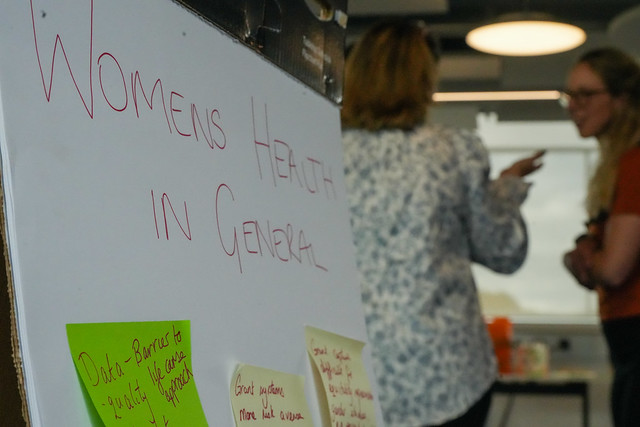 WOMENS HEALTH
IN GENERAL
Data - Barrier to
- quality life course
approach
Grant systems
more risk averse
Grant system